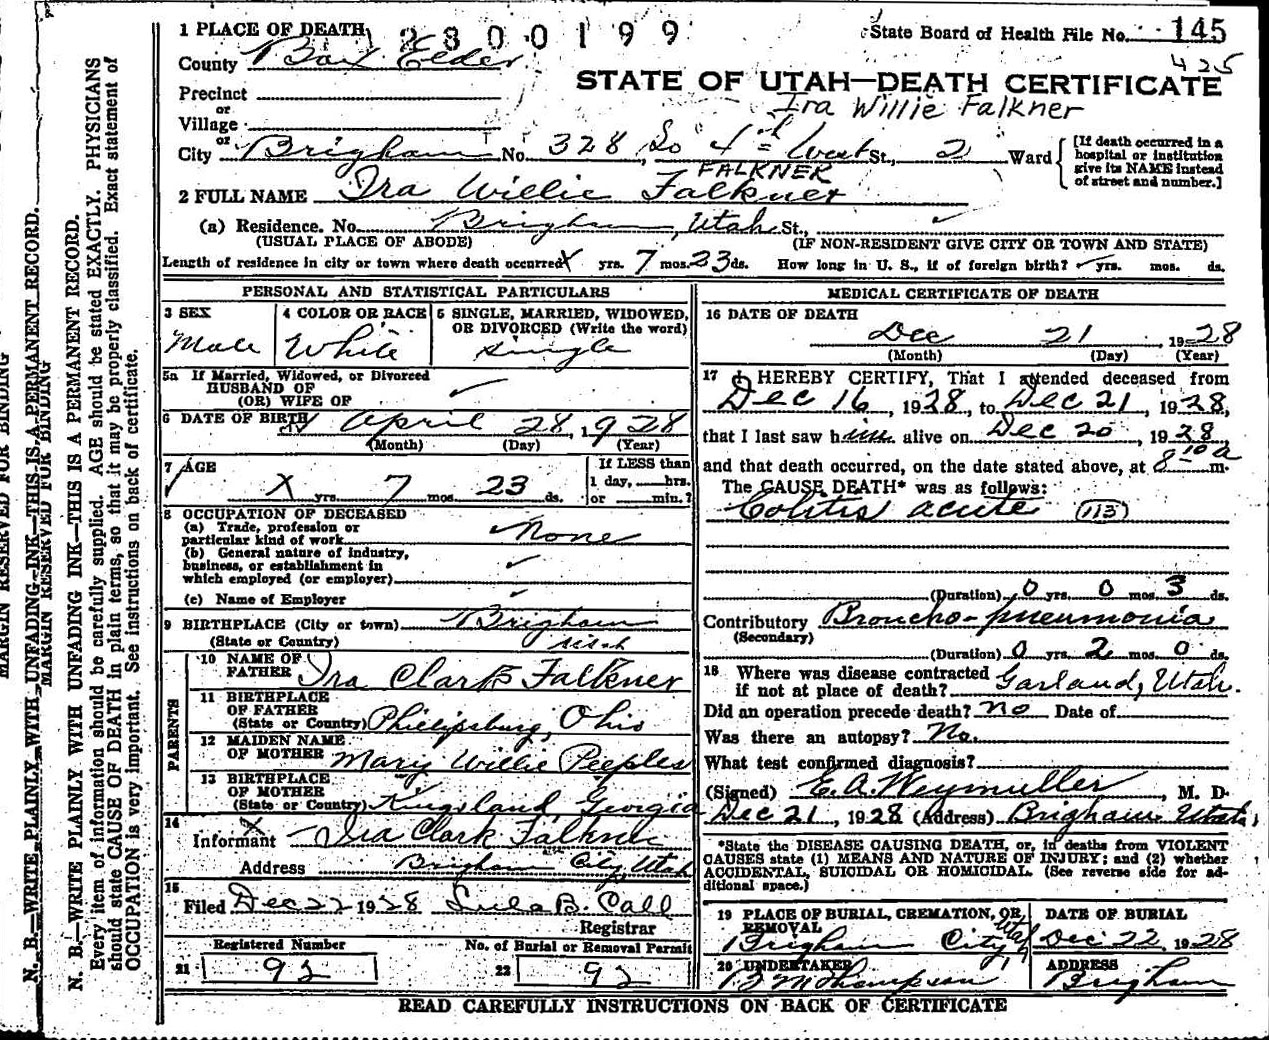 1 PLACE OF DEATH 2800199 State Board of Health File No. 145
County Box Elder 425
STATE OF UTAH—DEATH CERTIFICATE
Precinct
Ira Willie Falkner
or
Village
or
City Brigham No. 328 So 4th West St., 2 Ward [If death occurred in a hospital or institution give its NAME instead of street and number.]
FALKNER
2 FULL NAME Ira Willie Falkner
(a) Residence. No. Brigham, Utah St.,
(USUAL PLACE OF ABODE) (IF NON-RESIDENT GIVE CITY OR TOWN AND STATE)
Length of residence in city or town where death occurred X yrs. 7 mos. 23 ds. How long in U. S., if of foreign birth? yrs. mos. ds.
PERSONAL AND STATISTICAL PARTICULARS
3 SEX 4 COLOR OR RACE 5 SINGLE, MARRIED, WIDOWED, OR DIVORCED (Write the word)
Male White Single
5a If Married, Widowed, or Divorced
HUSBAND OF
(OR) WIFE OF
6 DATE OF BIRTH April 28, 1928
(Month) (Day) (Year)
7 AGE X yrs. 7 mos. 23 ds. If LESS than 1 day, hrs. or min.?
8 OCCUPATION OF DECEASED
(a) Trade, profession or
particular kind of work None
(b) General nature of industry,
business, or establishment in
which employed (or employer)
(c) Name of Employer
9 BIRTHPLACE (City or town) Brigham
(State or Country) Utah
PARENTS
10 NAME OF FATHER Ira Clark Falkner
11 BIRTHPLACE OF FATHER
(State or Country) Phillipsburg, Ohio
12 MAIDEN NAME OF MOTHER Mary Willie Peeples
13 BIRTHPLACE OF MOTHER
(State or Country) Kingsland, Georgia
14
Informant Ira Clark Falkner
Address Brigham City, Utah
15
Filed Dec 22 1928 Lula B. Call
Registrar
Registered Number No. of Burial or Removal Permit
21 92 22 92
MEDICAL CERTIFICATE OF DEATH
16 DATE OF DEATH
Dec 21 1928
(Month) (Day) (Year)
17 I HEREBY CERTIFY, That I attended deceased from
Dec 16, 1928, to Dec 21, 1928,
that I last saw him alive on Dec 20, 1928
and that death occurred, on the date stated above, at 8 10 a m.
The CAUSE DEATH* was as follows:
Colitis acute 113
(Duration) 0 yrs. 0 mos. 3 ds.
Contributory Broncho-pneumonia
(Secondary)
(Duration) 0 yrs. 2 mos. 0 ds.
18 Where was disease contracted
if not at place of death? Garland, Utah.
Did an operation precede death? No Date of
Was there an autopsy? No.
What test confirmed diagnosis?
(Signed) E. A. Weymuller, M. D.
Dec 21, 1928 (Address) Brigham Utah,
*State the DISEASE CAUSING DEATH, or, in deaths from VIOLENT
CAUSES state (1) MEANS AND NATURE OF INJURY; and (2) whether
ACCIDENTAL, SUICIDAL OR HOMICIDAL. (See reverse side for ad-
ditional space.)
19 PLACE OF BURIAL, CREMATION, OR REMOVAL DATE OF BURIAL
Brigham City Utah Dec 22, 1928
20 UNDERTAKER ADDRESS
B M Thompson Brigham
READ CAREFULLY INSTRUCTIONS ON BACK OF CERTIFICATE
MARGIN RESERVED FOR BINDING
N. B.—WRITE PLAINLY WITH UNFADING INK—THIS IS A PERMANENT RECORD.
MARGIN RESERVED FOR BINDING
N. B.—WRITE PLAINLY WITH UNFADING INK—THIS IS A PERMANENT RECORD.
Every item of information should be carefully supplied. AGE should be stated EXACTLY. PHYSICIANS
should state CAUSE OF DEATH in plain terms, so that it may be properly classified. Exact statement of
OCCUPATION is very important. See instructions on back of certificate.